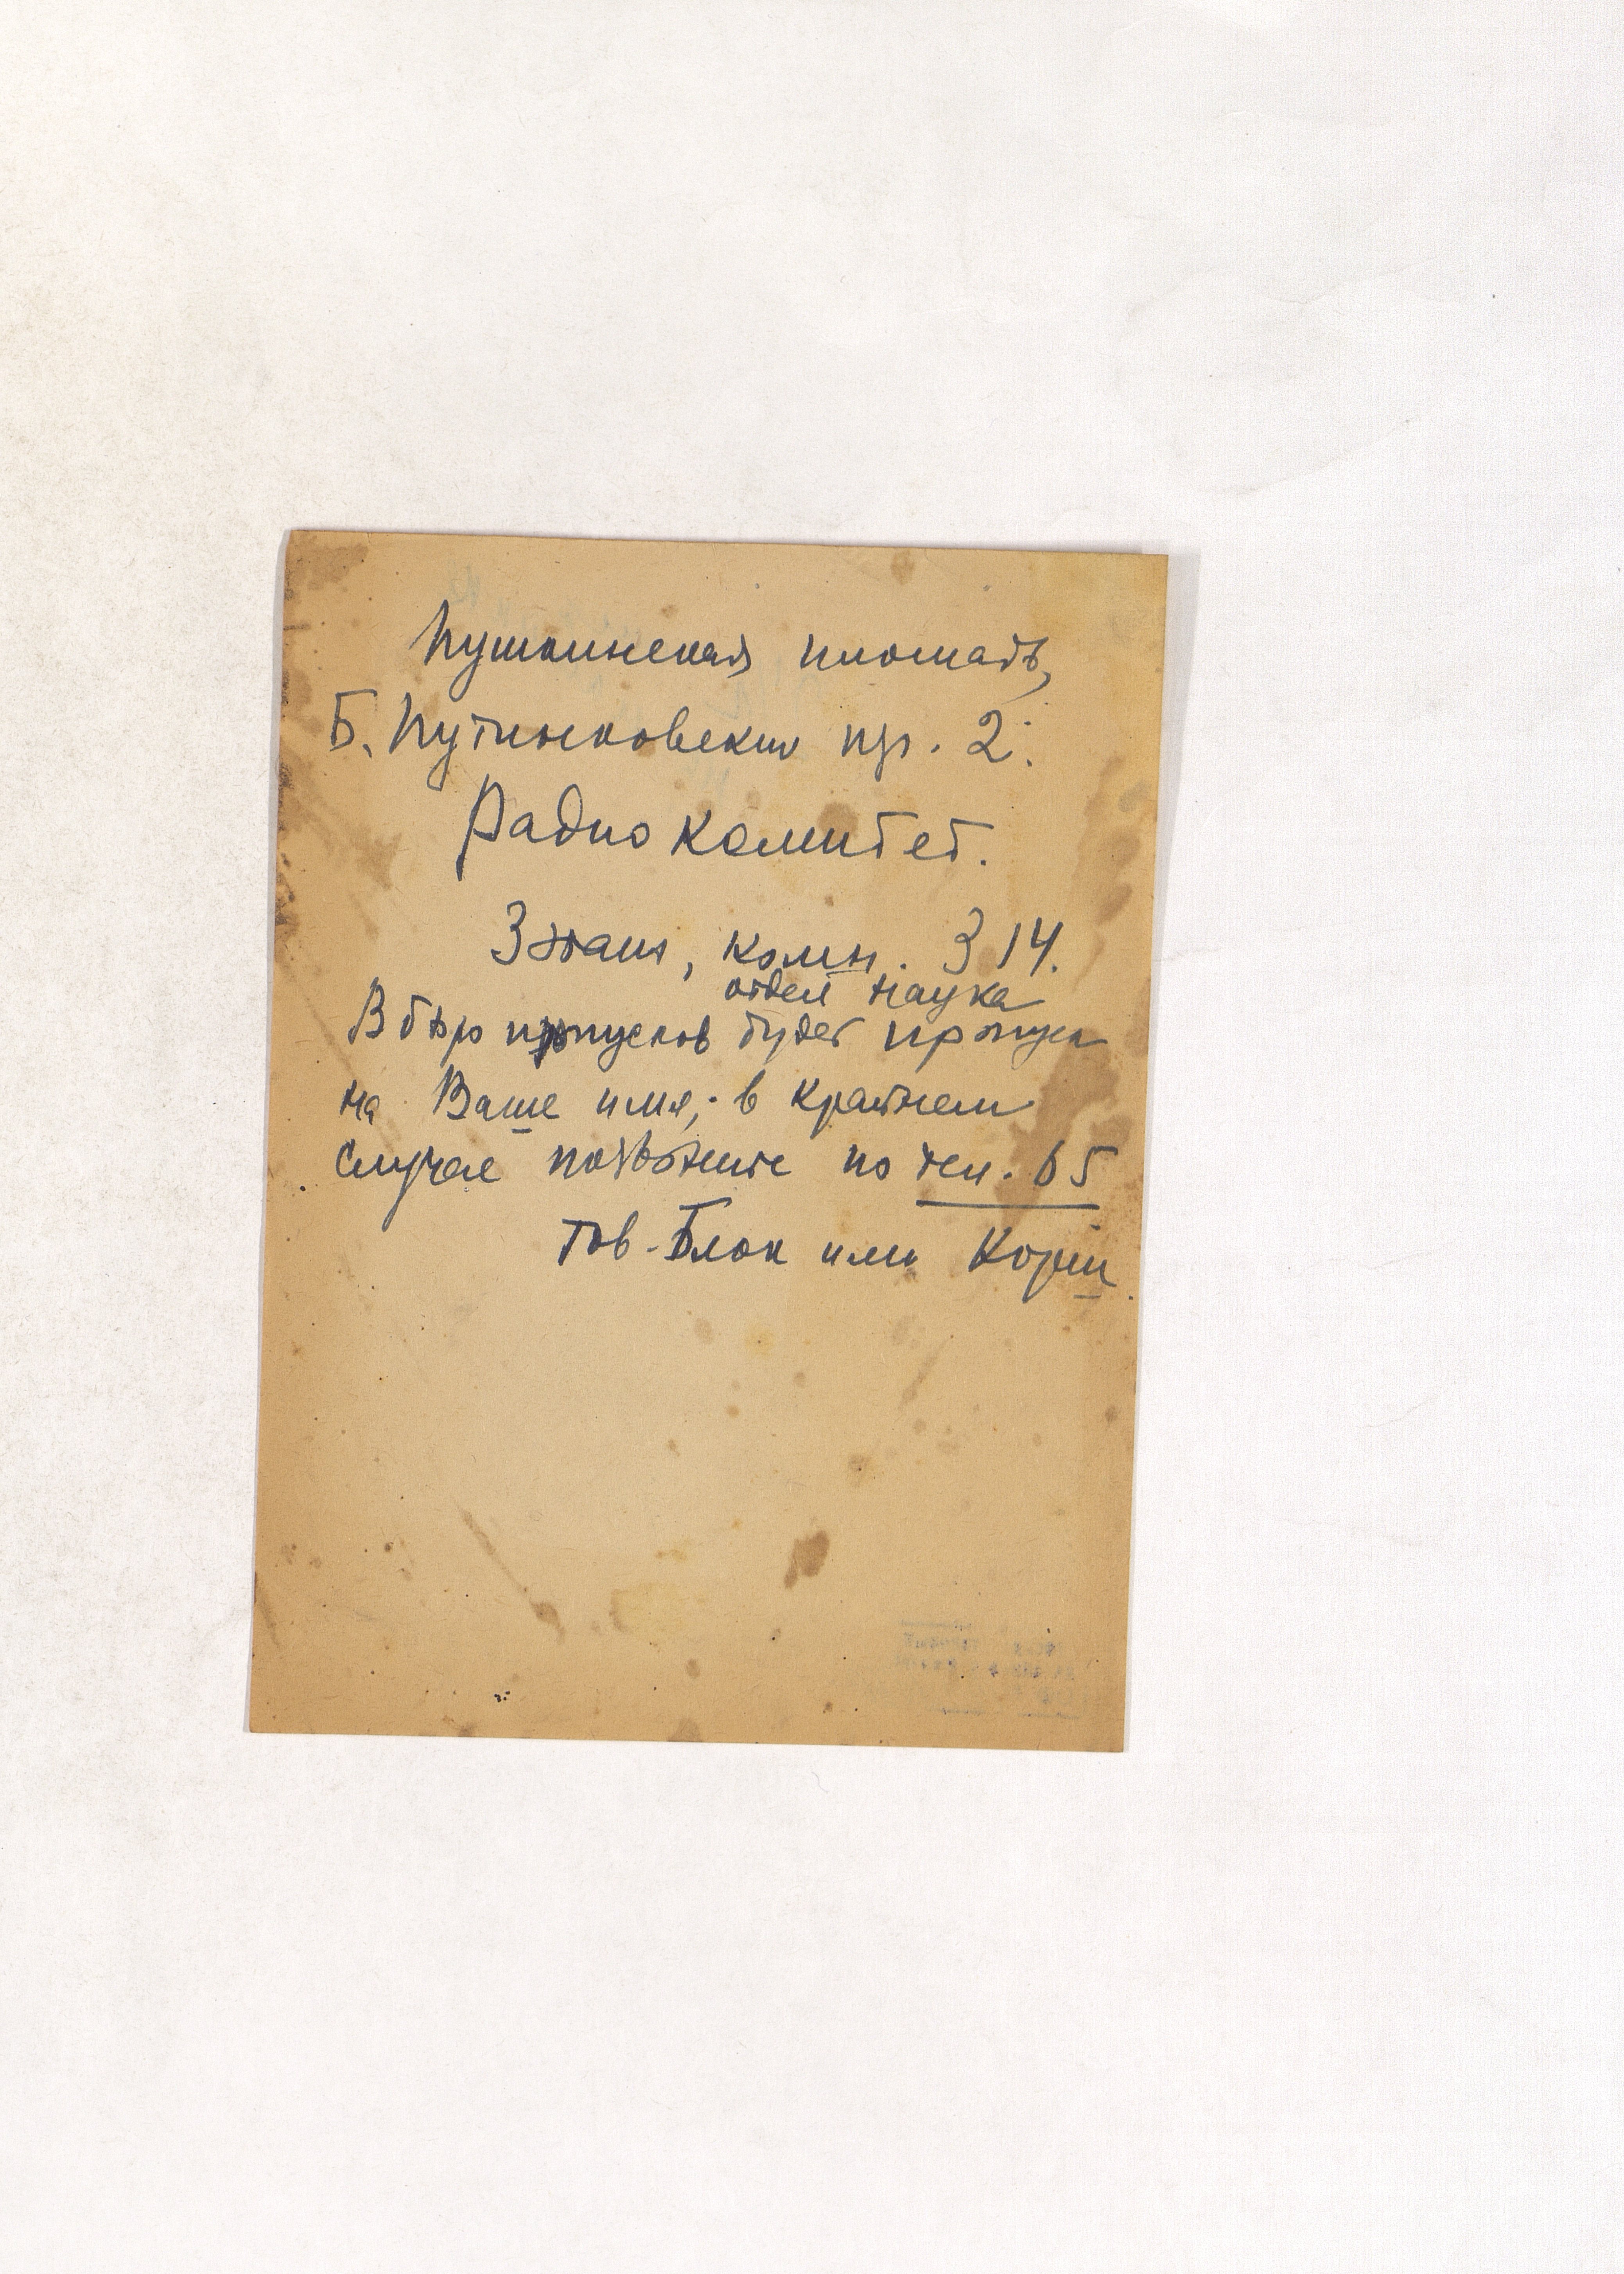 Пушкинская площадь,
Б. Путинковский пр. 2.
Радиокомитет.
3 этаж, комн. 314.
отдел наука
В бюро пропусков будет пропуск
на Ваше имя; в крайнем
случае позвоните по тел. 65
тов. Блок или